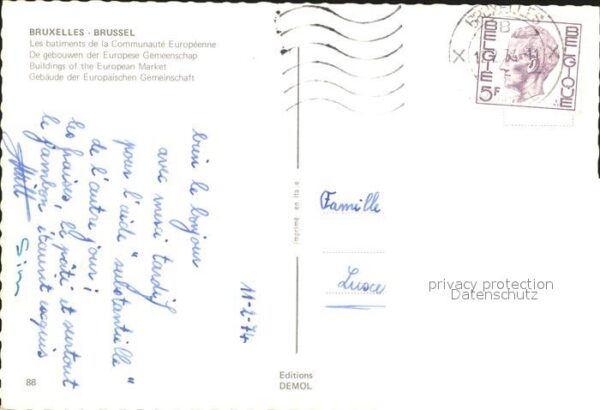 BRUXELLES - BRUSSEL
Les batiments de la Communauté Européenne
De gebouwen der Europese Gemeenschap
Buildings of the European Market
Gebäude der Europäischen Gemeinschaft
BRUXELLES
BELGIE
BELGIQUE
5F
bien le bonjour
avec merci tardif
pour l'aide "substantielle"
de l'autre jour!
les fraises, le pâté et surtout
le jambon étaient exquis
11-2-74
imprimé en Italie
Famille
privacy protection
Datenschutz
88
Editions
DEMOL